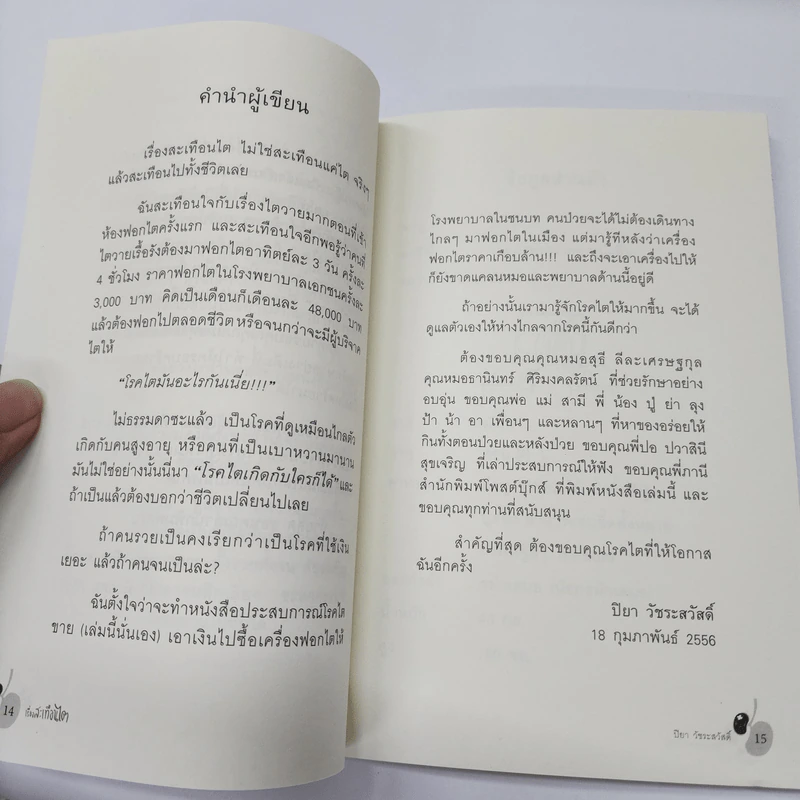 คำนำผู้เขียน
เรื่องสะเทือนไต ไม่ใช่สะเทือนแค่ไต จริงๆ
แล้วสะเทือนไปทั้งชีวิตเลย
ฉันสะเทือนใจกับเรื่องไตวายมากตอนที่เข้า
ห้องฟอกไตครั้งแรก และสะเทือนใจอีกพอรู้ว่าคนที่
ไตวายเรื้อรังต้องมาฟอกไตอาทิตย์ละ 3 วัน ครั้งละ
4 ชั่วโมง ราคาฟอกไตในโรงพยาบาลเอกชนครั้งละ
3,000 บาท คิดเป็นเดือนก็เดือนละ 48,000 บาท
แล้วต้องฟอกไปตลอดชีวิต หรือจนกว่าจะมีผู้บริจาค
ไตให้
“โรคไตมันอะไรกันเนี่ย!!!”
ไม่ธรรมดาซะแล้ว เป็นโรคที่ดูเหมือนไกลตัว
เกิดกับคนสูงอายุ หรือคนที่เป็นเบาหวานมานาน
มันไม่ใช่อย่างนั้นนี่นา “โรคไตเกิดกับใครก็ได้” และ
ถ้าเป็นแล้วต้องบอกว่าชีวิตเปลี่ยนไปเลย
ถ้าคนรวยเป็นคงเรียกว่าเป็นโรคที่ใช้เงิน
เยอะ แล้วถ้าคนจนเป็นล่ะ?
ฉันตั้งใจว่าจะทำหนังสือประสบการณ์โรคไต
ขาย (เล่มนี้นั่นเอง) เอาเงินไปซื้อเครื่องฟอกไตให้
14
โรงพยาบาลในชนบท คนป่วยจะได้ไม่ต้องเดินทาง
ไกลๆ มาฟอกไตในเมือง แต่มารู้ทีหลังว่าเครื่อง
ฟอกไตราคาเกือบล้าน!!! และถึงจะเอาเครื่องไปให้
ก็ยังขาดแคลนหมอและพยาบาลด้านนี้อยู่ดี
ถ้าอย่างนั้นเรามารู้จักโรคไตให้มากขึ้น จะได้
ดูแลตัวเองให้ห่างไกลจากโรคนี้กันดีกว่า
ต้องขอบคุณคุณหมอสุธี ลีละเศรษฐกุล
คุณหมอธานินทร์ ศิริมงคลรัตน์ ที่ช่วยรักษาอย่าง
อบอุ่น ขอบคุณพ่อ แม่ สามี พี่ น้อง ปู่ ย่า ลุง
ป้า น้า อา เพื่อนๆ และหลานๆ ที่หาของอร่อยให้
กินทั้งตอนป่วยและหลังป่วย ขอบคุณพี่ปอ ปวาสินี
สุขเจริญ ที่เล่าประสบการณ์ให้ฟัง ขอบคุณพี่ภานี
สำนักพิมพ์โพสต์บุ๊กส์ ที่พิมพ์หนังสือเล่มนี้ และ
ขอบคุณทุกท่านที่สนับสนุน
สำคัญที่สุด ต้องขอบคุณโรคไตที่ให้โอกาส
ฉันอีกครั้ง
ปิยา วัชระสวัสดิ์
18 กุมภาพันธ์ 2556
ปิยา วัชระสวัสดิ์ 15